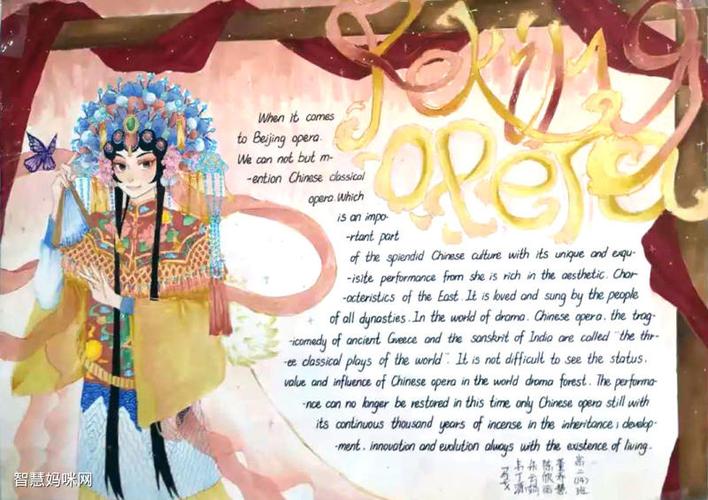 Peking
opera
When it comes
to Beijing opera.
We can not but m-
-ention Chinese classical
opera. Which
is an impo-
-rtant part
of the splendid Chinese culture with its unique and exqu-
-isite performance from she is rich in the aesthetic. Char-
-acteristics of the East. It is loved and sung by the people
of all dynasties. In the world of drama. Chinese opera. the trag-
-icomedy of ancient Gveece and the sanskrit of India are called "the thr-
-ee classical plays of the world". It is not difficult to see the status.
value and influence of Chinese opera in the world drama forest. The performa-
-nce can no longer be restored in this time only Chinese opera still with
its continuous thousand years of incense in the inheritance; develop-
-ment. innovation and evolution always with the existence of living.
高二(14)班
智慧妈咪网